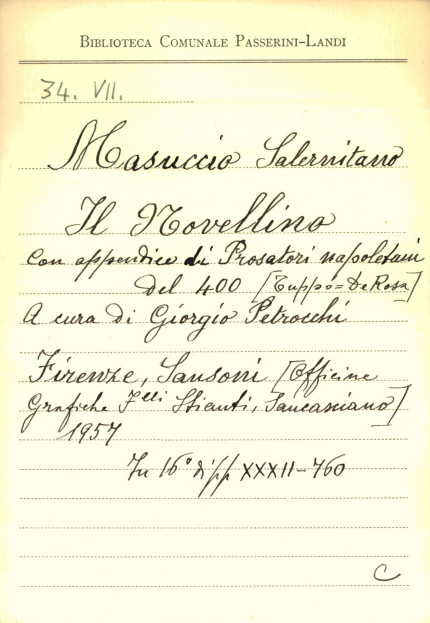 BIBLIOTECA COMUNALE PASSERINI-LANDI
34. VII.
Masuccio Salernitano
Il Novellino
con appendice di Prosatori napoletani
del 400 [Tuppo = De Rosa]
A cura di Giorgio Petrocchi
Firenze, Sansoni [Officine
Grafiche F.lli Stianti, Sancasciano]
1957
In 16° di pp XXXII-760
C